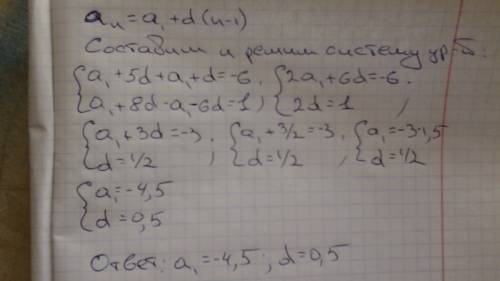 aₙ=a₁+d(n-1)
Составим и решим систему ур-й:
{a₁+5d+a₁+d=-6 ; {2a₁+6d=-6 ;
{a₁+8d-a₁-6d=1 ; {2d=1 ;
{a₁+3d=-3 ; {a₁+3/2=-3 ; {a₁=-3-1,5
{d=1/2 ; {d=1/2 ; {d=1/2
{a₁=-4,5
{d=0,5
Ответ: a₁=-4,5; d=0,5